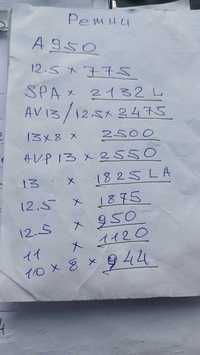 Ремни
A 950
12.5 × 775
SPA × 2132 L
AV13/12.5 × 2475
13×8 × 2500
AVP 13 × 2550
13 × 1825 LA
12.5 × 1875
12.5 × 950
11 × 1120
10 × 8 × 944